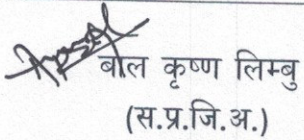 बाल कृष्ण लिम्बु
(स.प्र.जि.अ.)